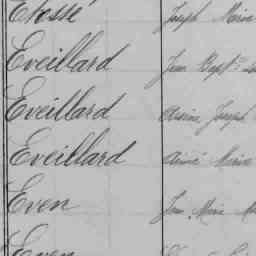 Etossé Joseph Marie
Eveillard Jean Bapt
Eveillard Joseph
Eveillard Aimé Marie
Even Jean Marie
Even